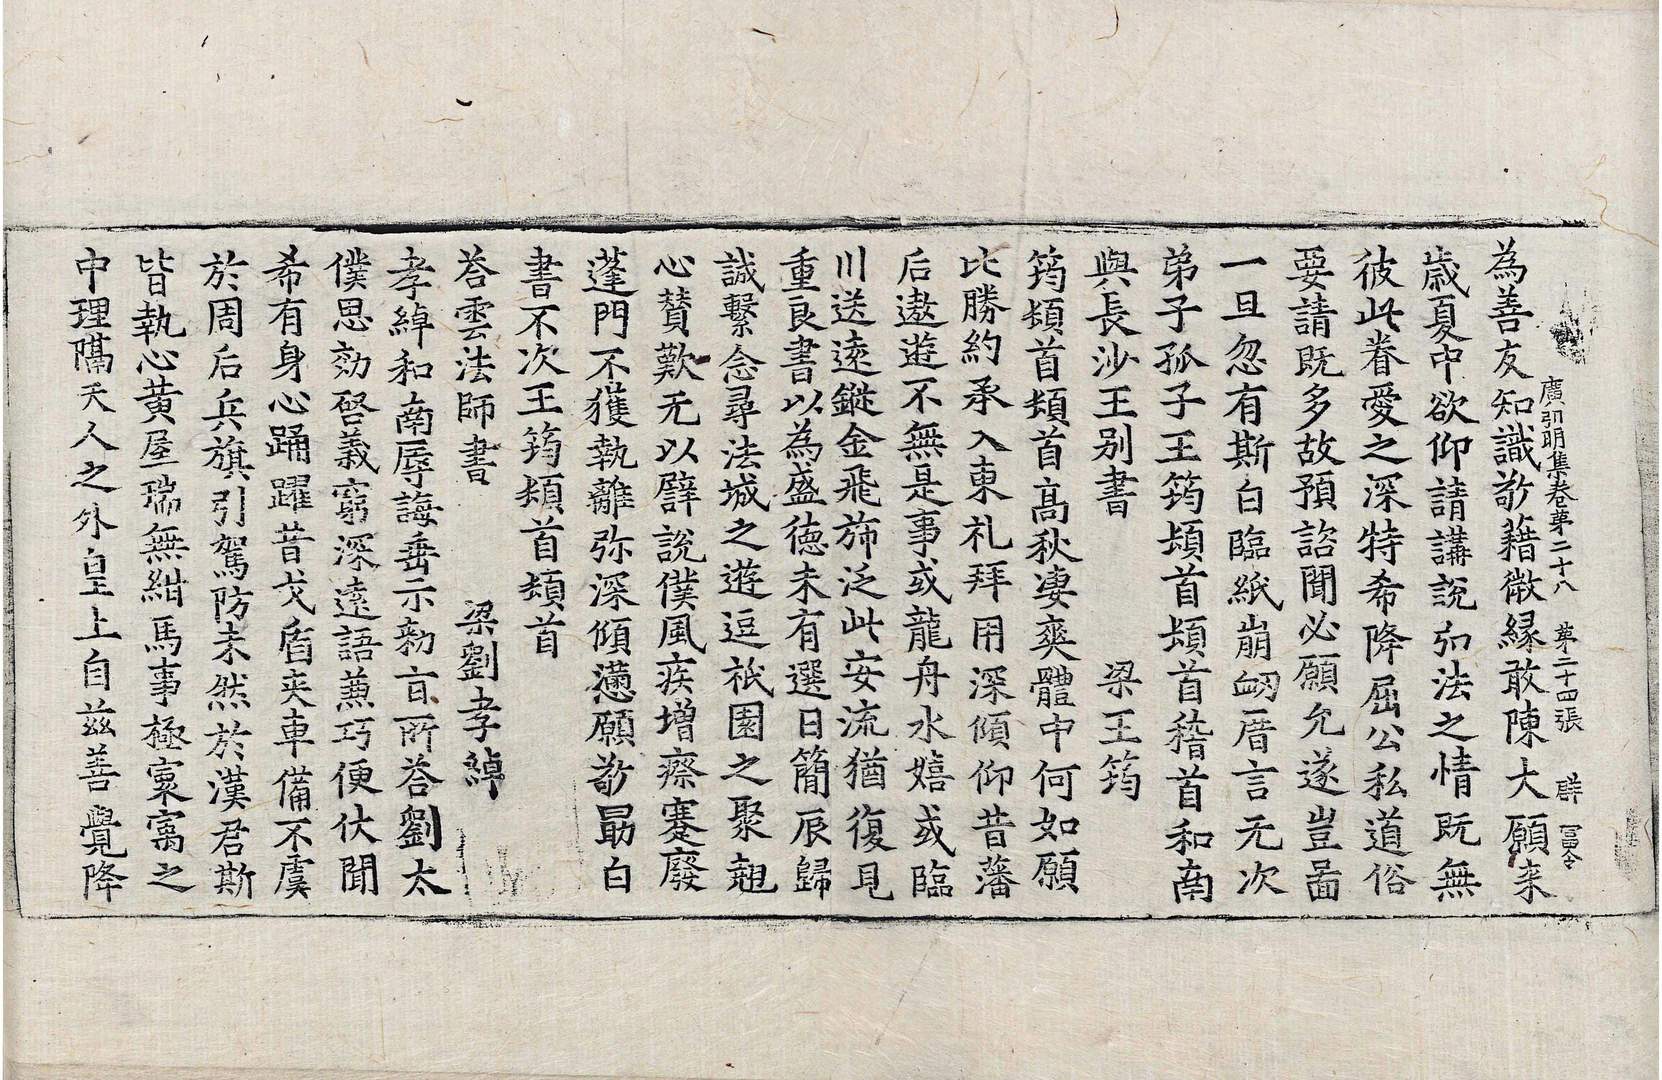 廣弘明集卷第二十八 第二十四張 群 冨令
為善友知識敬藉微緣敢陳大願来
歲夏中欲仰請講說弘法之情既無
彼此眷愛之深特希降屈公私道俗
要請既多故預諮聞必願允遂豈啚
一旦忽有斯白臨紙崩衂厝言无次
弟子孤子王筠頓首頓首稽首和南
與長沙王别書 梁王筠
筠頓首頓首高秋凄爽體中何如願
比勝約承入東礼拜用深傾仰昔藩
后遨遊不無是事或龍舟水嬉或臨
川送遠鏦金飛斾泛此安流猶復見
重良書以為盛徳未有選日簡辰歸
誠繫念尋法城之遊逗祇園之聚翹
心賛歎无以辟說僕風疾增瘵蹇廢
蓬門不獲執離弥深傾懣願敬勗白
書不次王筠頓首頓首
荅雲法師書 梁劉孝綽
孝綽和南辱誨垂示勑旨所荅劉太
僕思効啓義窮深遠語兼巧便伏聞
希有身心踊躍昔戈盾夾車備不虞
於周后兵旗引駕防未然於漢君斯
皆執心黄屋瑞無紺馬事極寰寓之
中理隔天人之外皇上自兹善覺降